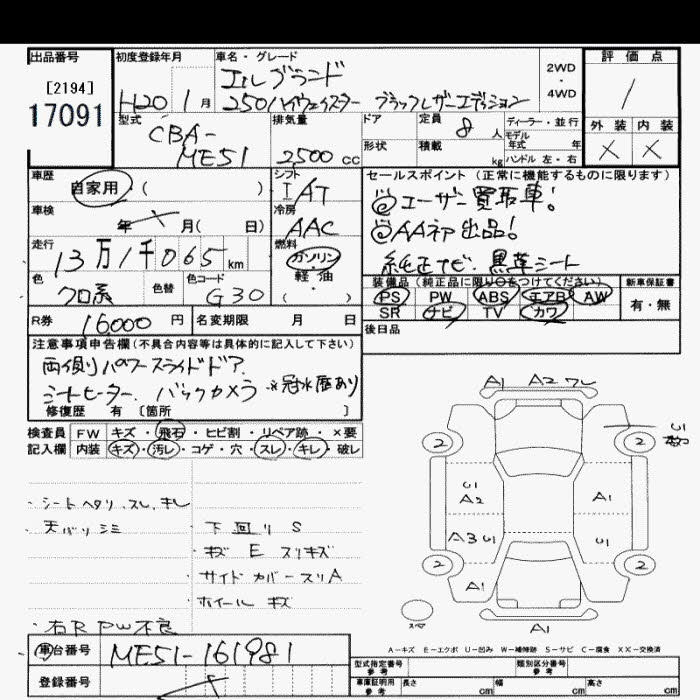 出品番号
[2194]
17091
初度登録年月
H20 1月
車名・グレード
エルグランド
250ハイウェイスター ブラックレザーエディション
2WD
・
4WD
評価点
/
外装 内装
× ×
型式
CBA-
ME51
排気量
2500 cc
ドア
形状
定員 8 人
積載 kg
ディーラー・並行
モデル
年式 年
ハンドル 左・右
車歴
自家用・( )
車検
年 月( 日)
走行
13万1千065km
色
クロ系
色替
色コード
G30
シフト
IAT
冷房
AAC
燃料
ガソリン
軽・油
( )
セールスポイント(正常に機能するものに限ります)
◎ユーザー買取車!
◎AA初出品!
純正ナビ・黒革シート
装備品(純正品に限り○をつけてください)
PS PW ABS エアB AW
SR ナビ TV カワ
新車保証書
有・無
後日品
R券 16000 円
名変期限 月 日
注意事項申告欄(不具合内容等は具体的に記入して下さい)
両側パワースライドドア.
シートヒーター. バックカメラ ※冠水歴あり
修復歴 有 〔箇所 〕
検査員 FW キズ・飛石・ヒビ割・リペア跡・×要
記入欄 内装 キズ・汚レ・コゲ・穴・スレ・キレ・破レ
・シートヘタリ.スレ.キレ
・天バリシミ
・下回りS
・キズ E スリキズ
・サイドカバースリA
・ホイールキズ
・右R PW不良
A1 A2 ワレ
2 2
U1
U1
A2
A1
A3 U1
U1
2 2
A1
A1
スペア
A-キズ E-エクボ U-凹み W-補修跡 S-サビ C-腐食 XX-交換済
車台番号 ME51-161981
登録番号
型式指定番号
参考
類別区分番号
参考
車庫証明用
参考
長さ cm 幅 cm 高さ cm